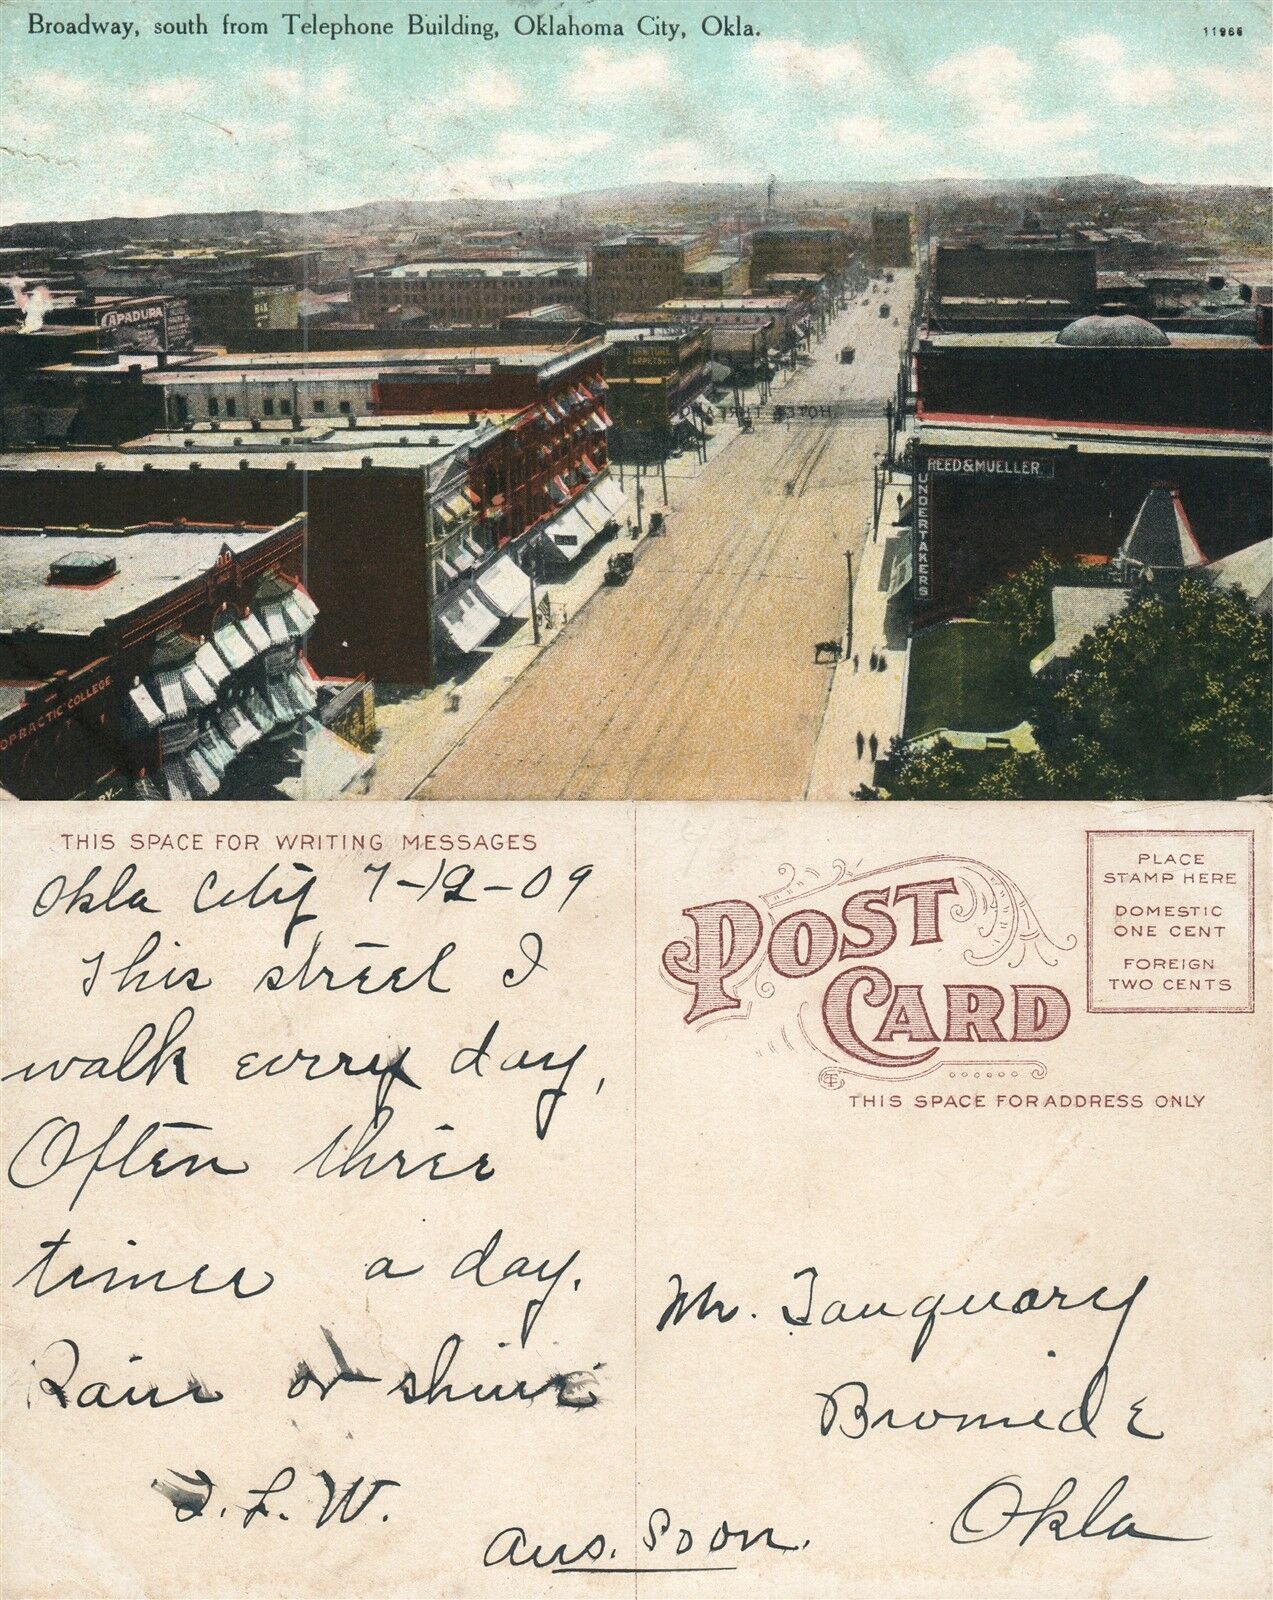 Broadway, south from Telephone Building, Oklahoma City, Okla.
11966
CAPADURA
FURNITURE
CARPETS
HOTEL THREADG
REED & MUELLER
UNDERTAKERS
OPRACTIC COLLEGE
THIS SPACE FOR WRITING MESSAGES
Okla City 7-12-09
This street I
walk every day,
Often three
times a day.
Rain or shine
L. W.
Ans. Soon.
POST
CARD
PLACE
STAMP HERE
DOMESTIC
ONE CENT
FOREIGN
TWO CENTS
THIS SPACE FOR ADDRESS ONLY
Mr. Tanquary
Bromide
Okla